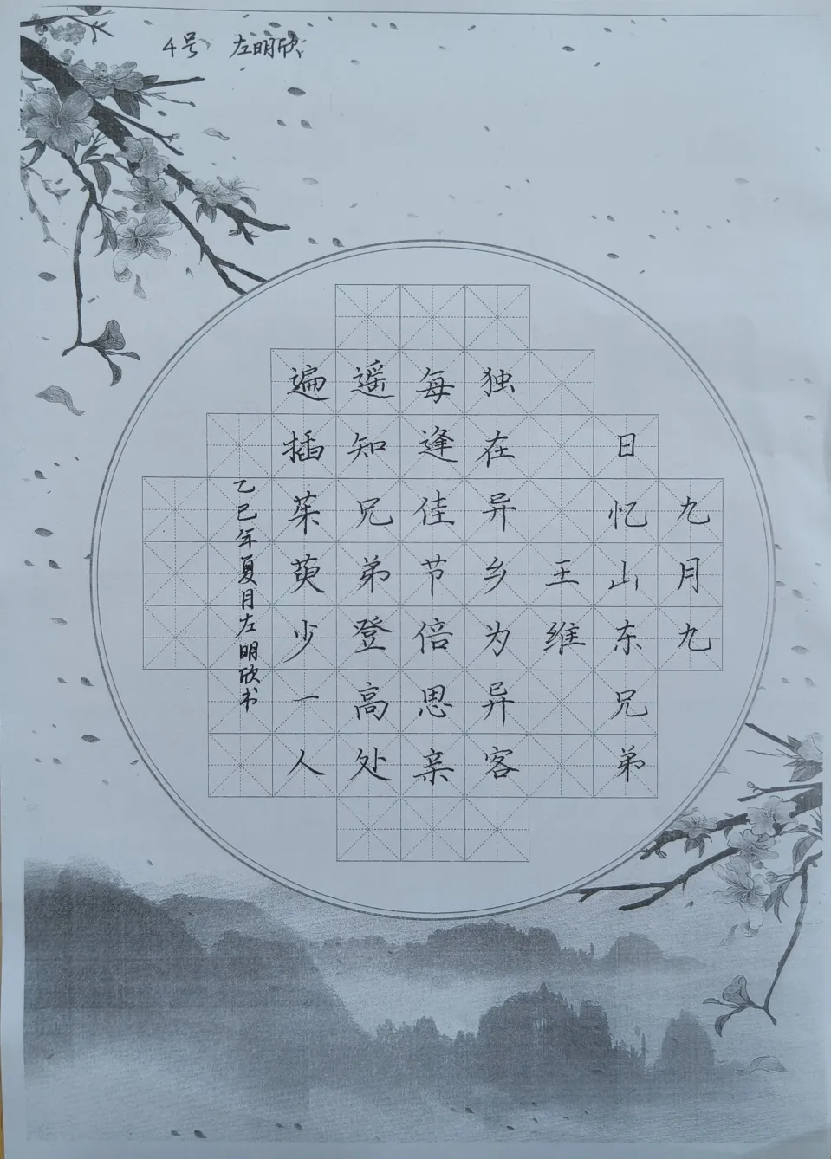 4号 左明欣
九月九
日忆山东兄弟
王维
独在异乡为异客
每逢佳节倍思亲
遥知兄弟登高处
遍插茱萸少一人
乙巳年夏月左明欣书